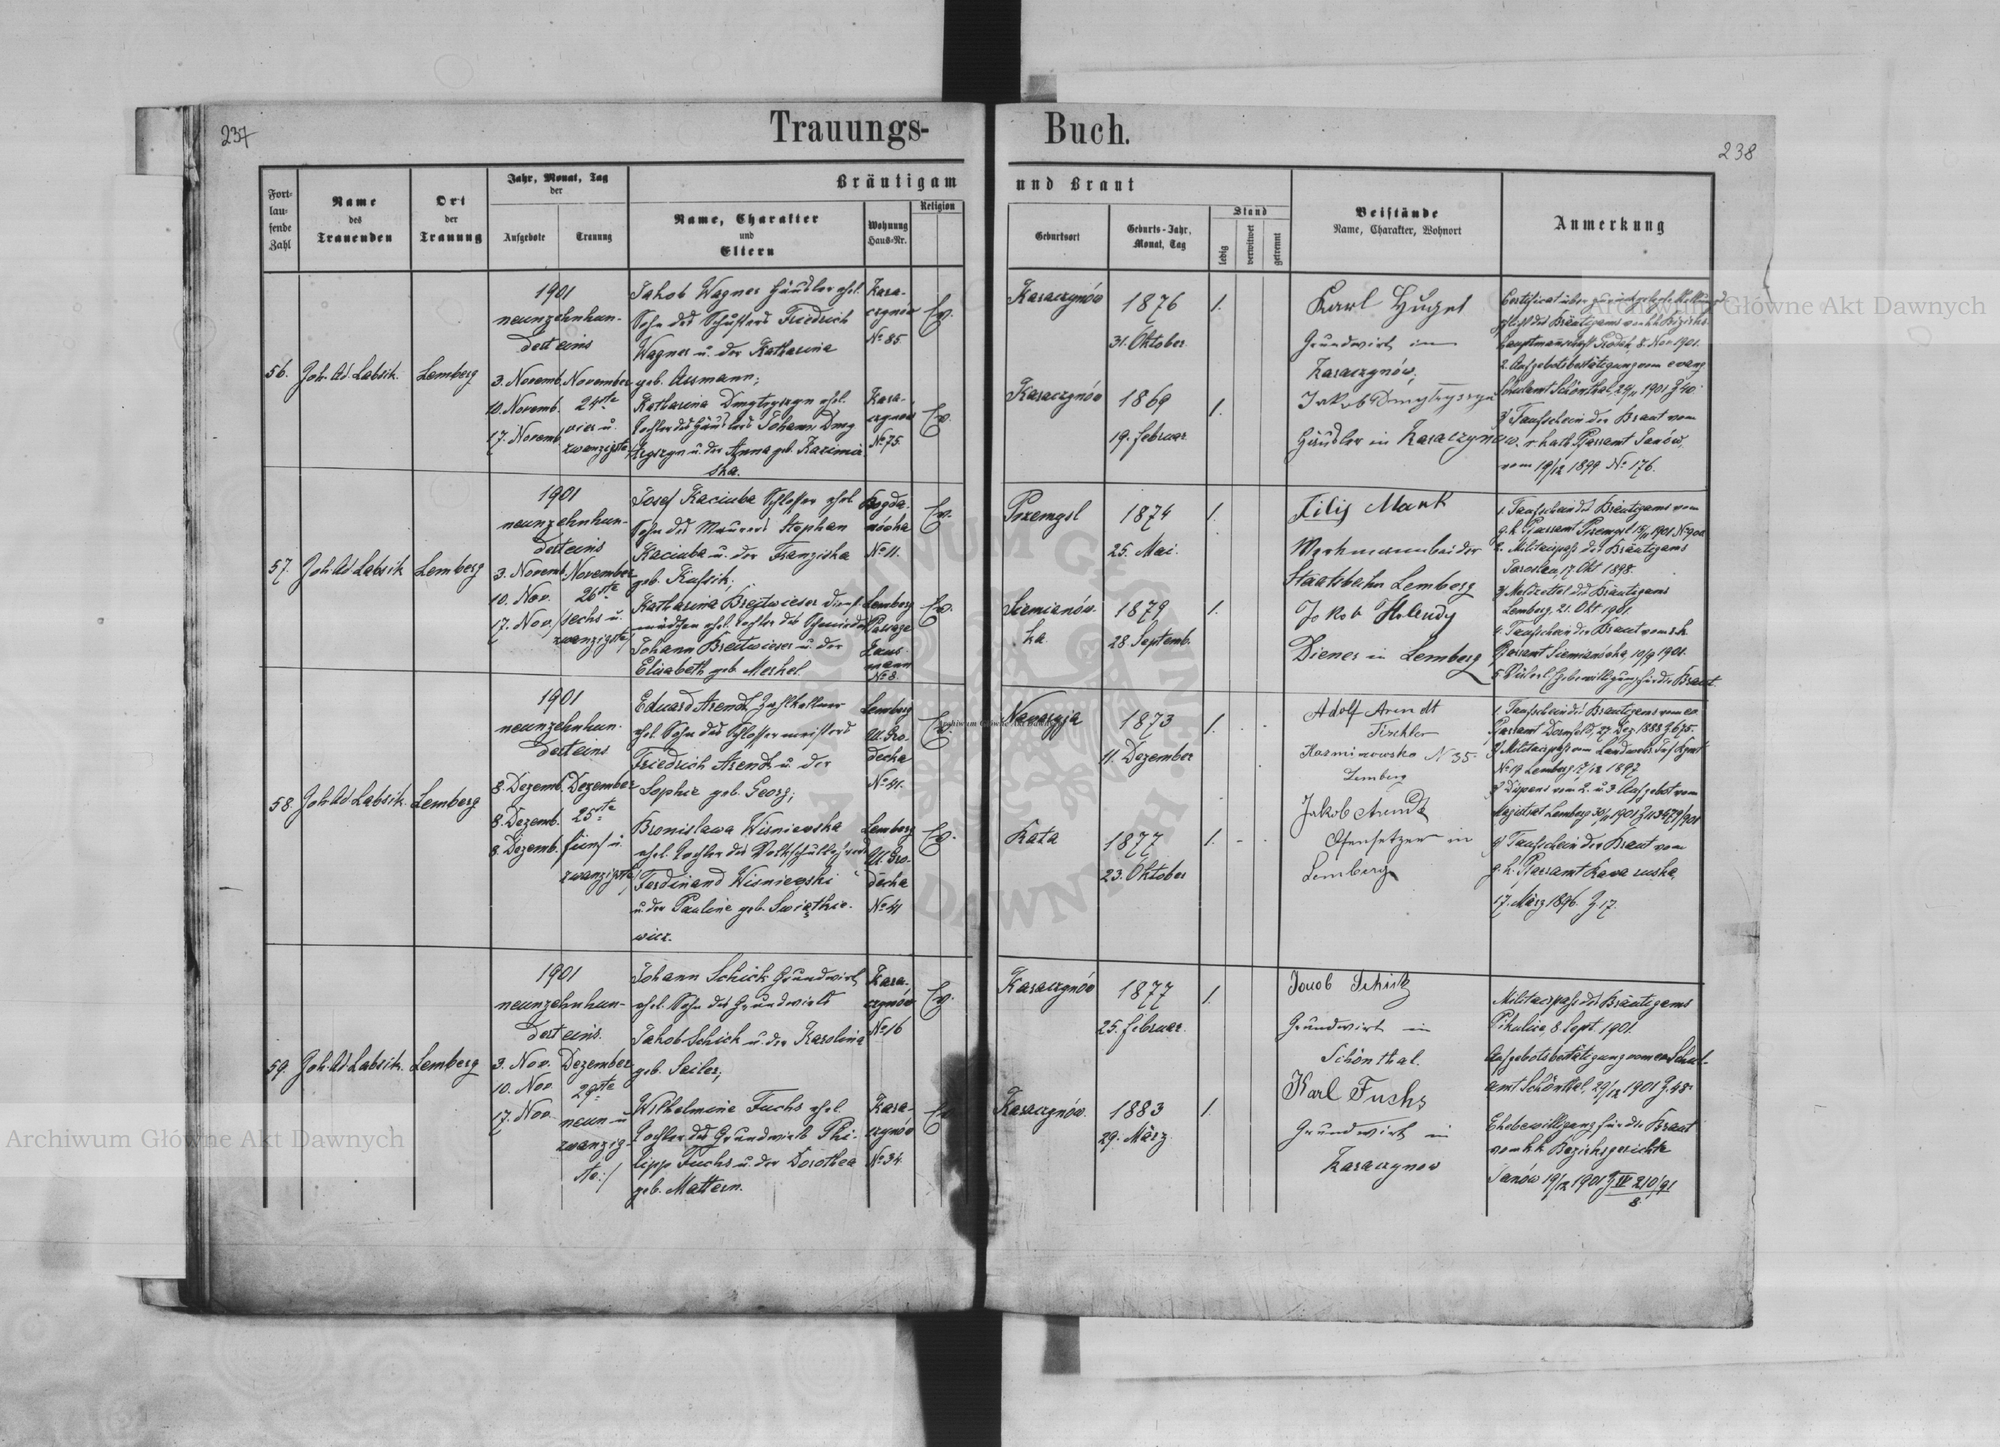 237
Trauungs-
Buch.
238
Fort-
lau-
fende
Zahl
Name
des
Trauenden
Ort
der
Trauung
Jahr, Monat, Tag
der
Aufgebote
Trauung
Bräutigam
und Braut
Name, Charakter
und
Eltern
Wohnung
Haus-Nr.
Religion
Geburtsort
Geburts-Jahr,
Monat, Tag
Stand
ledig
verwitwet
getrennt
Beistände
Name, Charakter, Wohnort
Anmerkung
56.
Joh. Ad. Labsik.
Lemberg
1901
neunzehnhun-
dert eins
3. Novemb.
10. Novemb.
17. Novemb.
November
24ste
vier u.
zwanzigste
Jakob Wagner Häusler ehel.
Sohn des Schusters Friedrich
Wagner u. der Katharina
geb. Assmann;
Katharina Dmytryszyn ehel.
Tochter des Häuslers Johann Dmy
tryszyn u. der Anna geb. Kazimir
ska.
Kara-
czynów
No 85
Kara-
czynów
No 75
Ev.
Ev.
Karaczynów
1876
31. Oktober
Karaczynów
1869
19. Februar
1.
1.
Karl Huget
Grundwirt in
Karaczynów,
Jakob Dmytryszyn
Häusler in Karaczynow
Certificat über
pflicht des Bräutigams von kk Bezirks
hauptmannschaft Grodek, 8. Nov 1901.
2. Aufgebotsbestätigung vom evang
Schulamt Schönthal, 24/11 1901 Z 40.
3. Taufschein der Braut vom
r. kath. Pfarramt Janów,
vom 19/12 1899 No 176.
57.
Joh. Ad. Labsik
Lemberg
1901
neunzehnhun-
dert eins
3. Novemb.
10. Nov.
17. Nov.
November
26ste
sechs u.
zwanzigste
Josef Kaciuba Schlosser ehel.
Sohn des Maurers Stephan
Kaciuba u. der Franziska
geb.
Katharina Breitwieser Dienst-
mädchen ehel. Tochter des Schmiedes
Johann Breitwieser u. der
Elisabeth geb. Merkel.
Bogda-
nówka
No 11.
Lemberg
Passage
Haus-
mann
No 8
Ev.
Ev.
Przemysl
1874
25. Mai.
Siemianów-
ka
1879
28. Septemb.
1.
1.
Filip Mark
Werkmann bei der
Staatsbahn Lemberg
Jakob
Diener in Lemberg
1. Taufschein des Bräutigams vom
g. k. Pfarramt Przemysl 15/11 1901 No 902
2. Militärpaß des Bräutigams
Jaroslau, 17. Okt 1898.
3. Meldzettel des Bräutigams
Lemberg, 21. Okt 1901.
4. Taufschein der Braut vom r. k.
Pfarramt Siemianówka, 10/9 1901.
58.
Joh. Ad. Labsik.
Lemberg
1901
neunzehnhun-
dert eins
8. Dezemb.
8. Dezemb.
8. Dezemb.
Dezember
25ste
fünf u.
zwanzigste
Eduard Arendt, Zahlkellner
ehel. Sohn des Schlossermeisters
Friedrich Arendt u. der
Sophie geb. Georg;
Bronislawa Wisniewska
ehel. Tochter des Volksschullehrers
Ferdinand Wisniewski
u. der Pauline geb. Swiątkie-
wicz.
Lemberg
Ul. Gro-
decka
No 41.
Lemberg
Ul. Gro-
decka
No 41
Ev.
Ev.
Nawaryja
1873
11. Dezember
Kata
1877
23. Oktober
1.
1.
Adolf Arendt
Tischler
Kazmirowska N 35.
Lemberg
Jakob Arendt
Ofensetzer in
Lemberg
1. Taufschein des Bräutigams vom ev.
Pfarramt Dornfeld, 27. Dez 1888 Z 675.
2. Militärpaß vom Landwehr Inf. Rgmt
No 19 Lemberg 1897
3. Dispens vom 2. u. 3. Aufgebot vom
Magistrat Lemberg 30/11 1901
4. Taufschein der Braut vom
g. k. Pfarramt Rawa ruska,
17. März 1896. Z 17.
59.
Joh. Ad. Labsik.
Lemberg
1901
neunzehnhun-
dert eins.
3. Nov.
10. Nov.
17. Nov.
Dezember
29ste
neun u
zwanzig-
ste./
Johann Schick Grundwirt,
ehel. Sohn des Grundwirts
Jakob Schick u. der Karolina
geb. Seiler;
Wilhelmine Fuchs ehel.
Tochter des Grundwirts Phi-
lipp Fuchs u. der Dorothea
geb. Mattern.
Kara-
czynów
No 16
Kara-
czynów
No 34
Ev.
Ev
Karaczynów
1877
25. Februar.
Karaczynów.
1883
29. März
1.
1.
Jacob Schick
Grundwirt in
Schönthal.
Karl Fuchs
Grundwirt in
Karaczynow
Militärpaß des Bräutigams
Pikulice 8. Sept 1901.
Aufgebotsbestätigung vom ev. Schul-
amt Schönthal, 29/12 1901 Z 48.
Ehebewilligung für die Braut
vom kk Bezirksgerichte
Janów 19/12 1901 Z IV 210/91
8.
Archiwum Główne Akt Dawnych
Archiwum Główne Akt Dawnych
Archiwum Główne Akt Dawnych